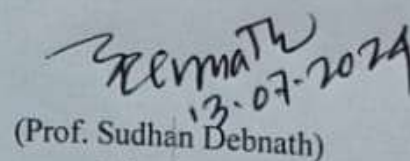 13-07-2024
(Prof. Sudhan Debnath)